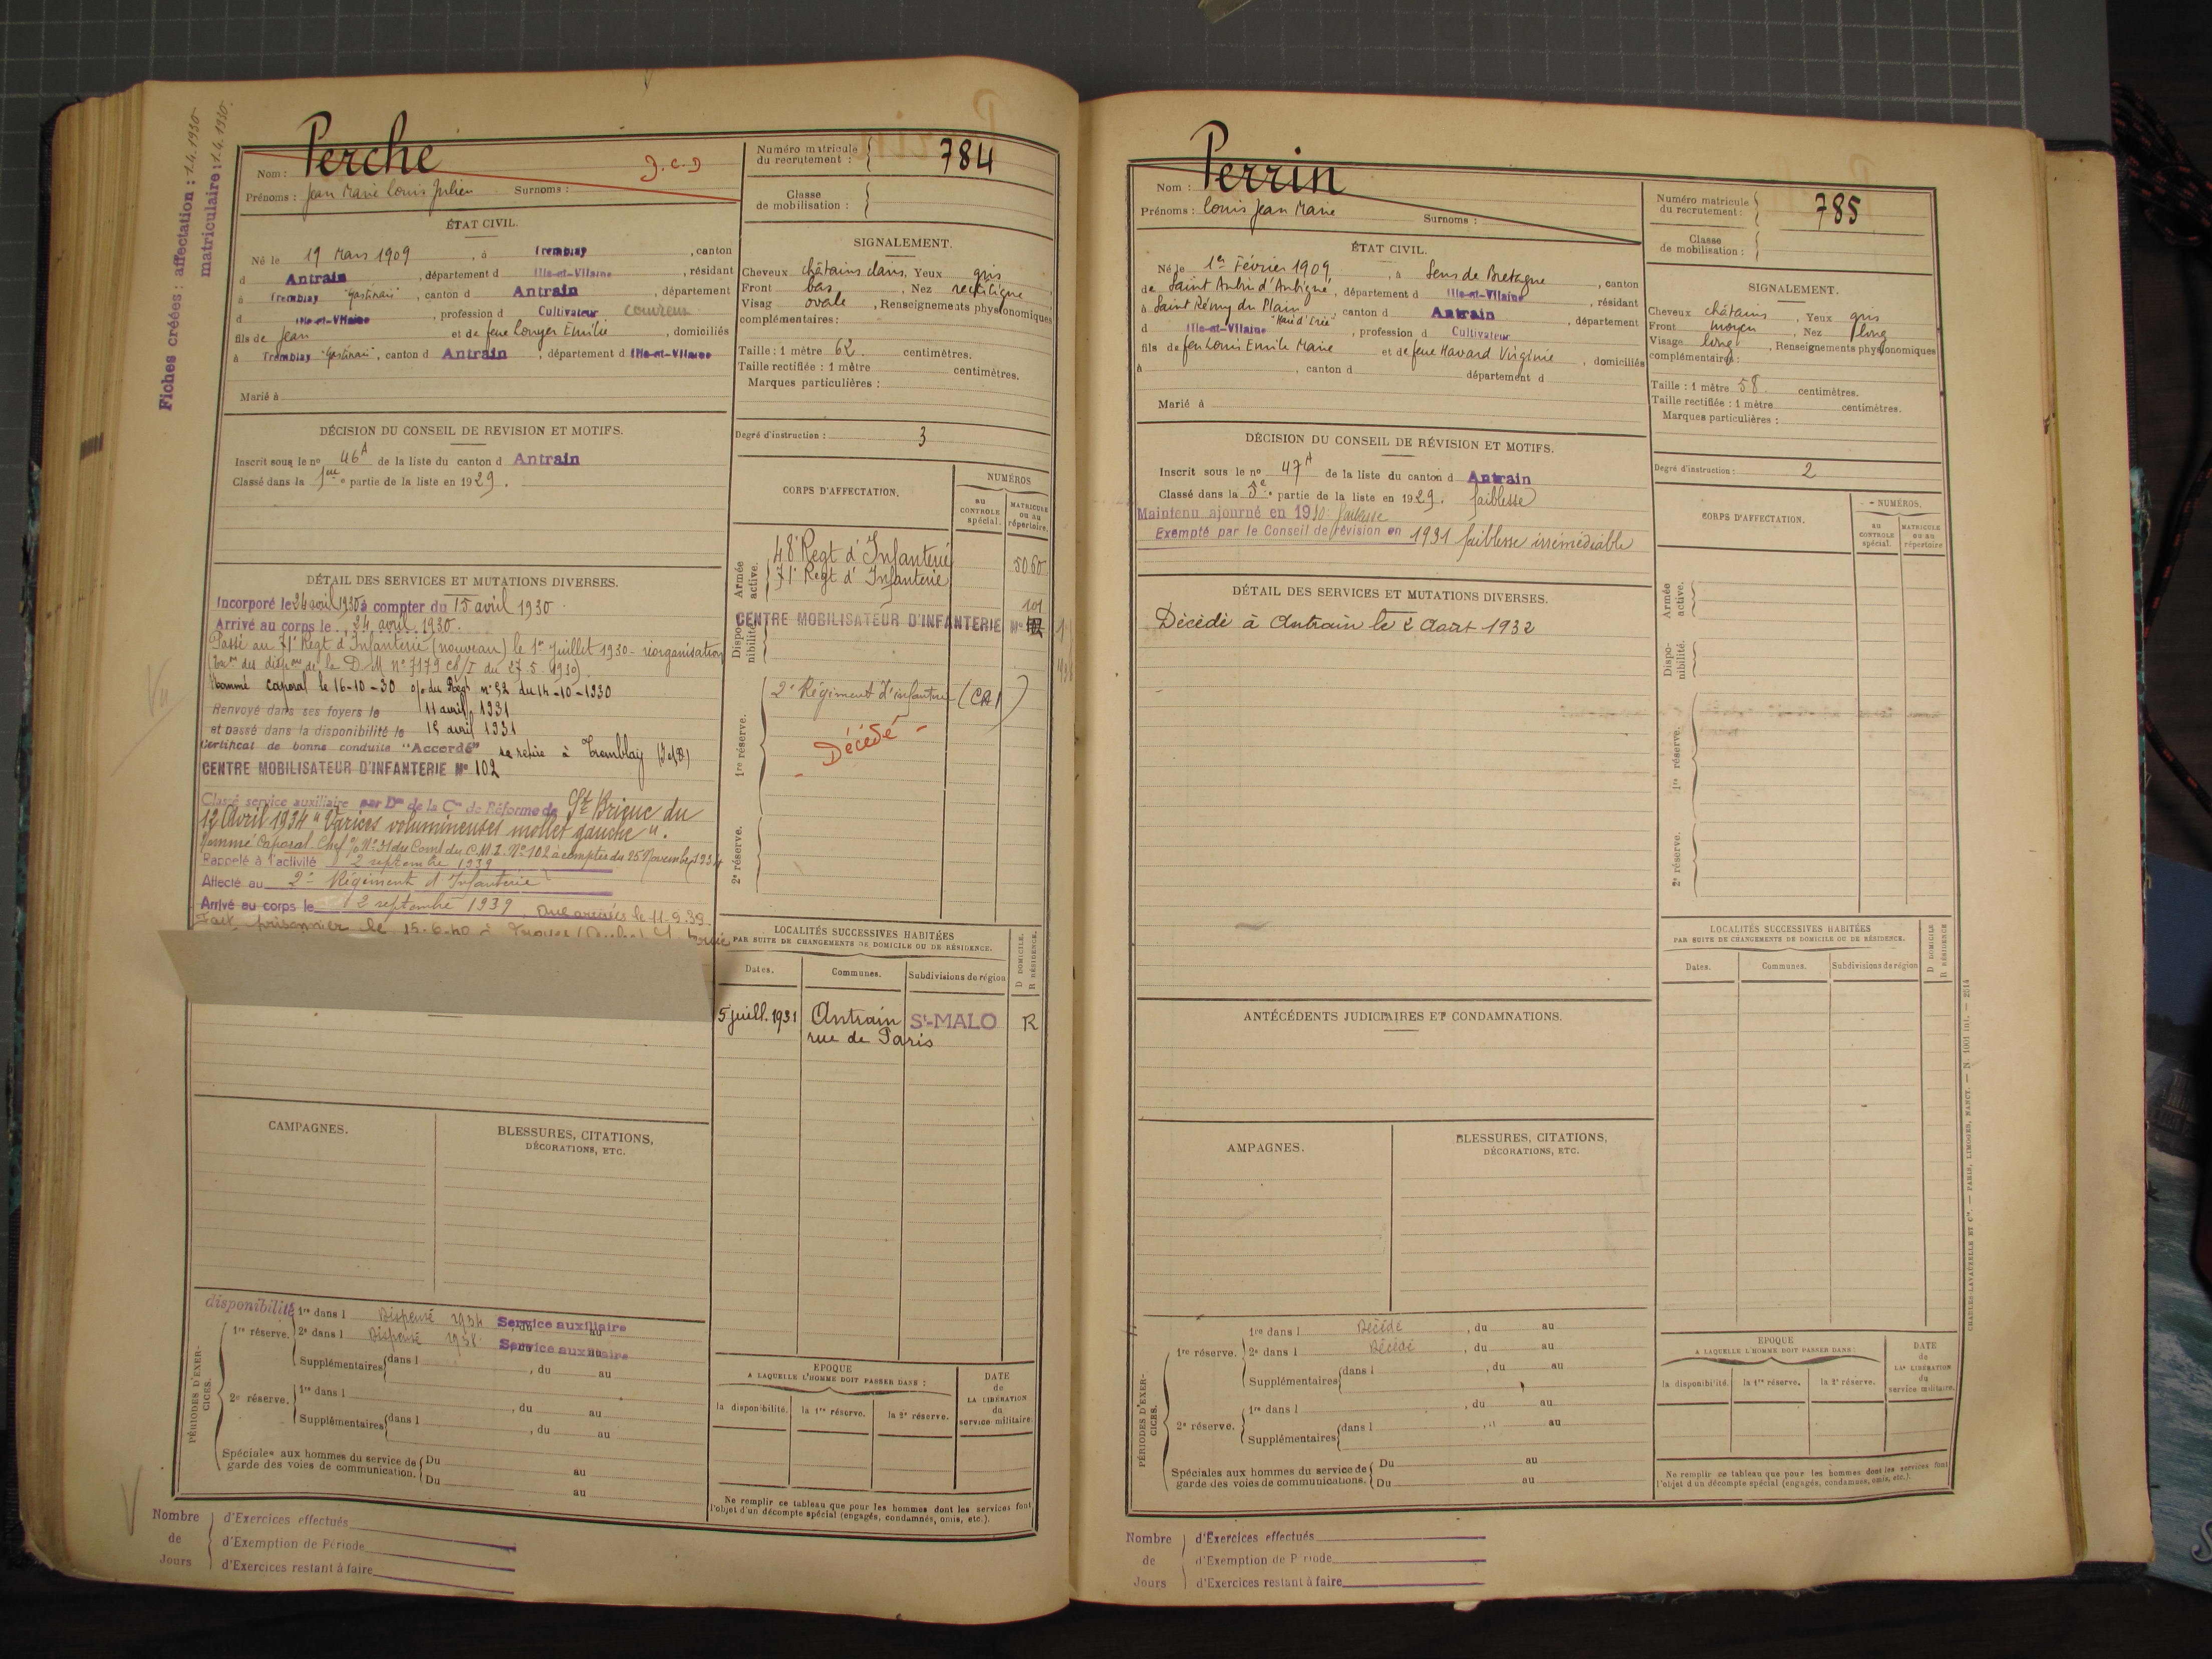 Fiches créées : affectation : 1.4.1930
matriculaire : 1.4.1930.
Nom : Perche J.C.D
Prénoms : Jean Marie Louis Julien Surnoms :
ÉTAT CIVIL.
Né le 19 Mars 1909, à Tremblay, canton
d Antrain, département d Ille-et-Vilaine, résidant
à Tremblay "Gastinais", canton d Antrain, département
d Ille-et-Vilaine, profession d Cultivateur couvreur
fils de Jean et de feue Louyer Emilie, domiciliés
à Tremblay "Gastinais", canton d Antrain, département d Ille-et-Vilaine
Marié à
DÉCISION DU CONSEIL DE REVISION ET MOTIFS.
Inscrit sous le no 46A de la liste du canton d Antrain
Classé dans la 1ère partie de la liste en 1929.
DÉTAIL DES SERVICES ET MUTATIONS DIVERSES.
Incorporé le 24 avril 1930 à compter du 15 avril 1930.
Arrivé au corps le 24 avril 1930.
Passé au 71e Regt d'Infanterie (nouveau) le 1er Juillet 1930 - réorganisation
des de la D.M. no 7179 du 27.5.1930)
Nommé caporal le 16-10-30 o/o du Regt no 92 du 14-10-1930
Renvoyé dans ses foyers le 11 avril 1931
et passé dans la disponibilité le 15 avril 1931
Certificat de bonne conduite "Accordé" se retire à Tremblay (I et V)
CENTRE MOBILISATEUR D'INFANTERIE No 102
Classé service auxiliaire par Don de la Con de Réforme de St Brieuc du
12 Avril 1934 "Varices volumineuses mollet gauche".
Nommé Caporal-Chef No 31 du Comt du C.M.I. No 102 à compter du 25 Novembre 193
Rappelé à l'activité 2 septembre 1939
Affecté au 2e Régiment d'Infanterie
Arrivé au corps le 2 septembre 1939. Aux armées le 11-9-39
Fait prisonnier le 15-6-40 à Troyes (Aube)
CAMPAGNES.
BLESSURES, CITATIONS,
DÉCORATIONS, ETC.
PÉRIODES D'EXERCICES.
disponibilité 1re dans l Dispensé 1934 Service auxiliaire, du au
1re réserve. 2e dans l Dispensé 1938 Service auxiliaire
Supplémentaires dans l , du au
2e réserve. 1re dans l , du au
Supplémentaires dans l , du au
Spéciales aux hommes du service de garde des voies de communication. Du au
Du au
Nombre de Jours
d'Exercices effectués
d'Exemption de Période
d'Exercices restant à faire
Numéro matricule du recrutement : 784
Classe de mobilisation :
SIGNALEMENT.
Cheveux châtains clairs, Yeux gris
Front bas, Nez rectiligne
Visag ovale, Renseignements physionomiques
complémentaires :
Taille : 1 mètre 62 centimètres.
Taille rectifiée : 1 mètre centimètres.
Marques particulières :
Degré d'instruction : 3
CORPS D'AFFECTATION.
NUMÉROS
au CONTROLE spécial.
MATRICULE ou au répertoire.
Armée active.
48e Regt d'Infanterie 5060
71e Regt d'Infanterie
101
Disponibilité.
CENTRE MOBILISATEUR D'INFANTERIE No
1re réserve.
2e Régiment d'infanterie
- Décédé -
2e réserve.
LOCALITÉS SUCCESSIVES HABITÉES
PAR SUITE DE CHANGEMENTS DE DOMICILE OU DE RÉSIDENCE.
D DOMICILE.
R RÉSIDENCE.
Dates. Communes. Subdivisions de région
5 juill. 1931 Antrain St-MALO R
rue de Paris
EPOQUE
A LAQUELLE L'HOMME DOIT PASSER DANS :
la disponibilité. la 1re réserve. la 2e réserve.
DATE de LA LIBÉRATION du service militaire.
Ne remplir ce tableau que pour les hommes dont les services font
l'objet d'un décompte spécial (engagés, condamnés, omis, etc.).
Nom : Perrin
Prénoms : Louis Jean Marie Surnoms :
ÉTAT CIVIL.
Né le 1er Février 1909, à Sens de Bretagne, canton
de Saint Aubin d'Aubigné, département d Ille-et-Vilaine, résidant
à Saint Rémy du Plain, canton d Antrain, département
d Ille-et-Vilaine, profession d Cultivateur
fils de feu Louis Emile Marie et de feue Havard Virginie, domiciliés
à , canton d département d
Marié à
DÉCISION DU CONSEIL DE RÉVISION ET MOTIFS.
Inscrit sous le no 47A de la liste du canton d Antrain
Classé dans la 5e partie de la liste en 1929. faiblesse
Maintenu ajourné en 1930: faiblesse
Exempté par le Conseil de révision en 1931 faiblesse irrémédiable
DÉTAIL DES SERVICES ET MUTATIONS DIVERSES.
Décédé à Antrain le 2 Août 1932
ANTÉCÉDENTS JUDICIAIRES ET CONDAMNATIONS.
AMPAGNES.
BLESSURES, CITATIONS,
DÉCORATIONS, ETC.
PÉRIODES D'EXERCICES.
1re réserve. 1re dans l Décédé, du au
2e dans l Décédé, du au
Supplémentaires dans l , du au
2e réserve. 1re dans l , du au
Supplémentaires dans l au
Spéciales aux hommes du service de garde des voies de communications. Du au
Du au
Nombre de Jours
d'Exercices effectués
d'Exemption de Période
d'Exercices restant à faire
Numéro matricule du recrutement : 785
Classe de mobilisation :
SIGNALEMENT.
Cheveux châtains, Yeux gris
Front moyen, Nez long
Visage long, Renseignements physionomiques
complémentaires :
Taille : 1 mètre 58 centimètres.
Taille rectifiée : 1 mètre centimètres.
Marques particulières :
Degré d'instruction : 2
CORPS D'AFFECTATION.
NUMÉROS.
au CONTROLE spécial.
MATRICULE ou au répertoire
Armée active.
Disponibilité.
1re réserve.
2e réserve.
LOCALITÉS SUCCESSIVES HABITÉES
PAR SUITE DE CHANGEMENTS DE DOMICILE OU DE RÉSIDENCE.
D DOMICILE
R RÉSIDENCE
Dates. Communes. Subdivisions de région
EPOQUE
A LAQUELLE L'HOMME DOIT PASSER DANS :
la disponibilité. la 1re réserve. la 2e réserve.
DATE de LA LIBÉRATION du service militaire.
Ne remplir ce tableau que pour les hommes dont les services font
l'objet d'un décompte spécial (engagés, condamnés, omis, etc.).
CHARLES-LAVAUZELLE ET Cie. — PARIS, LIMOGES, NANCY. — N 1001 int. — 2514